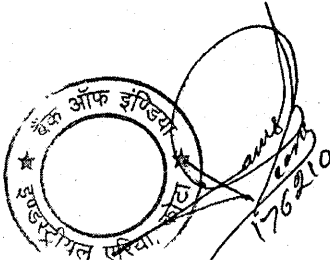 बैंक ऑफ इण्डिया
इण्डस्ट्रीयल एरिया, कोटा
176210